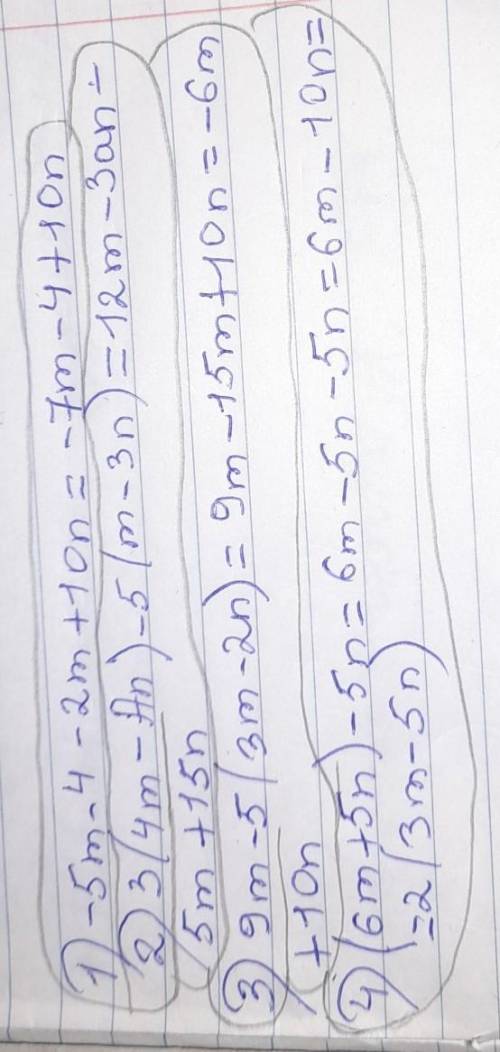 1) -5m-4-2m+10n = -7m-4+10n
2) 3(4m-An)-5(m-3n)=12m-3an-
5m+15n
3) 9m-5(3m-2n)=9m-15m+10n=-6m
+10n
4) (6m+5n)-5n=6m-5n-5n=6m-10n=
=2(3m-5n)